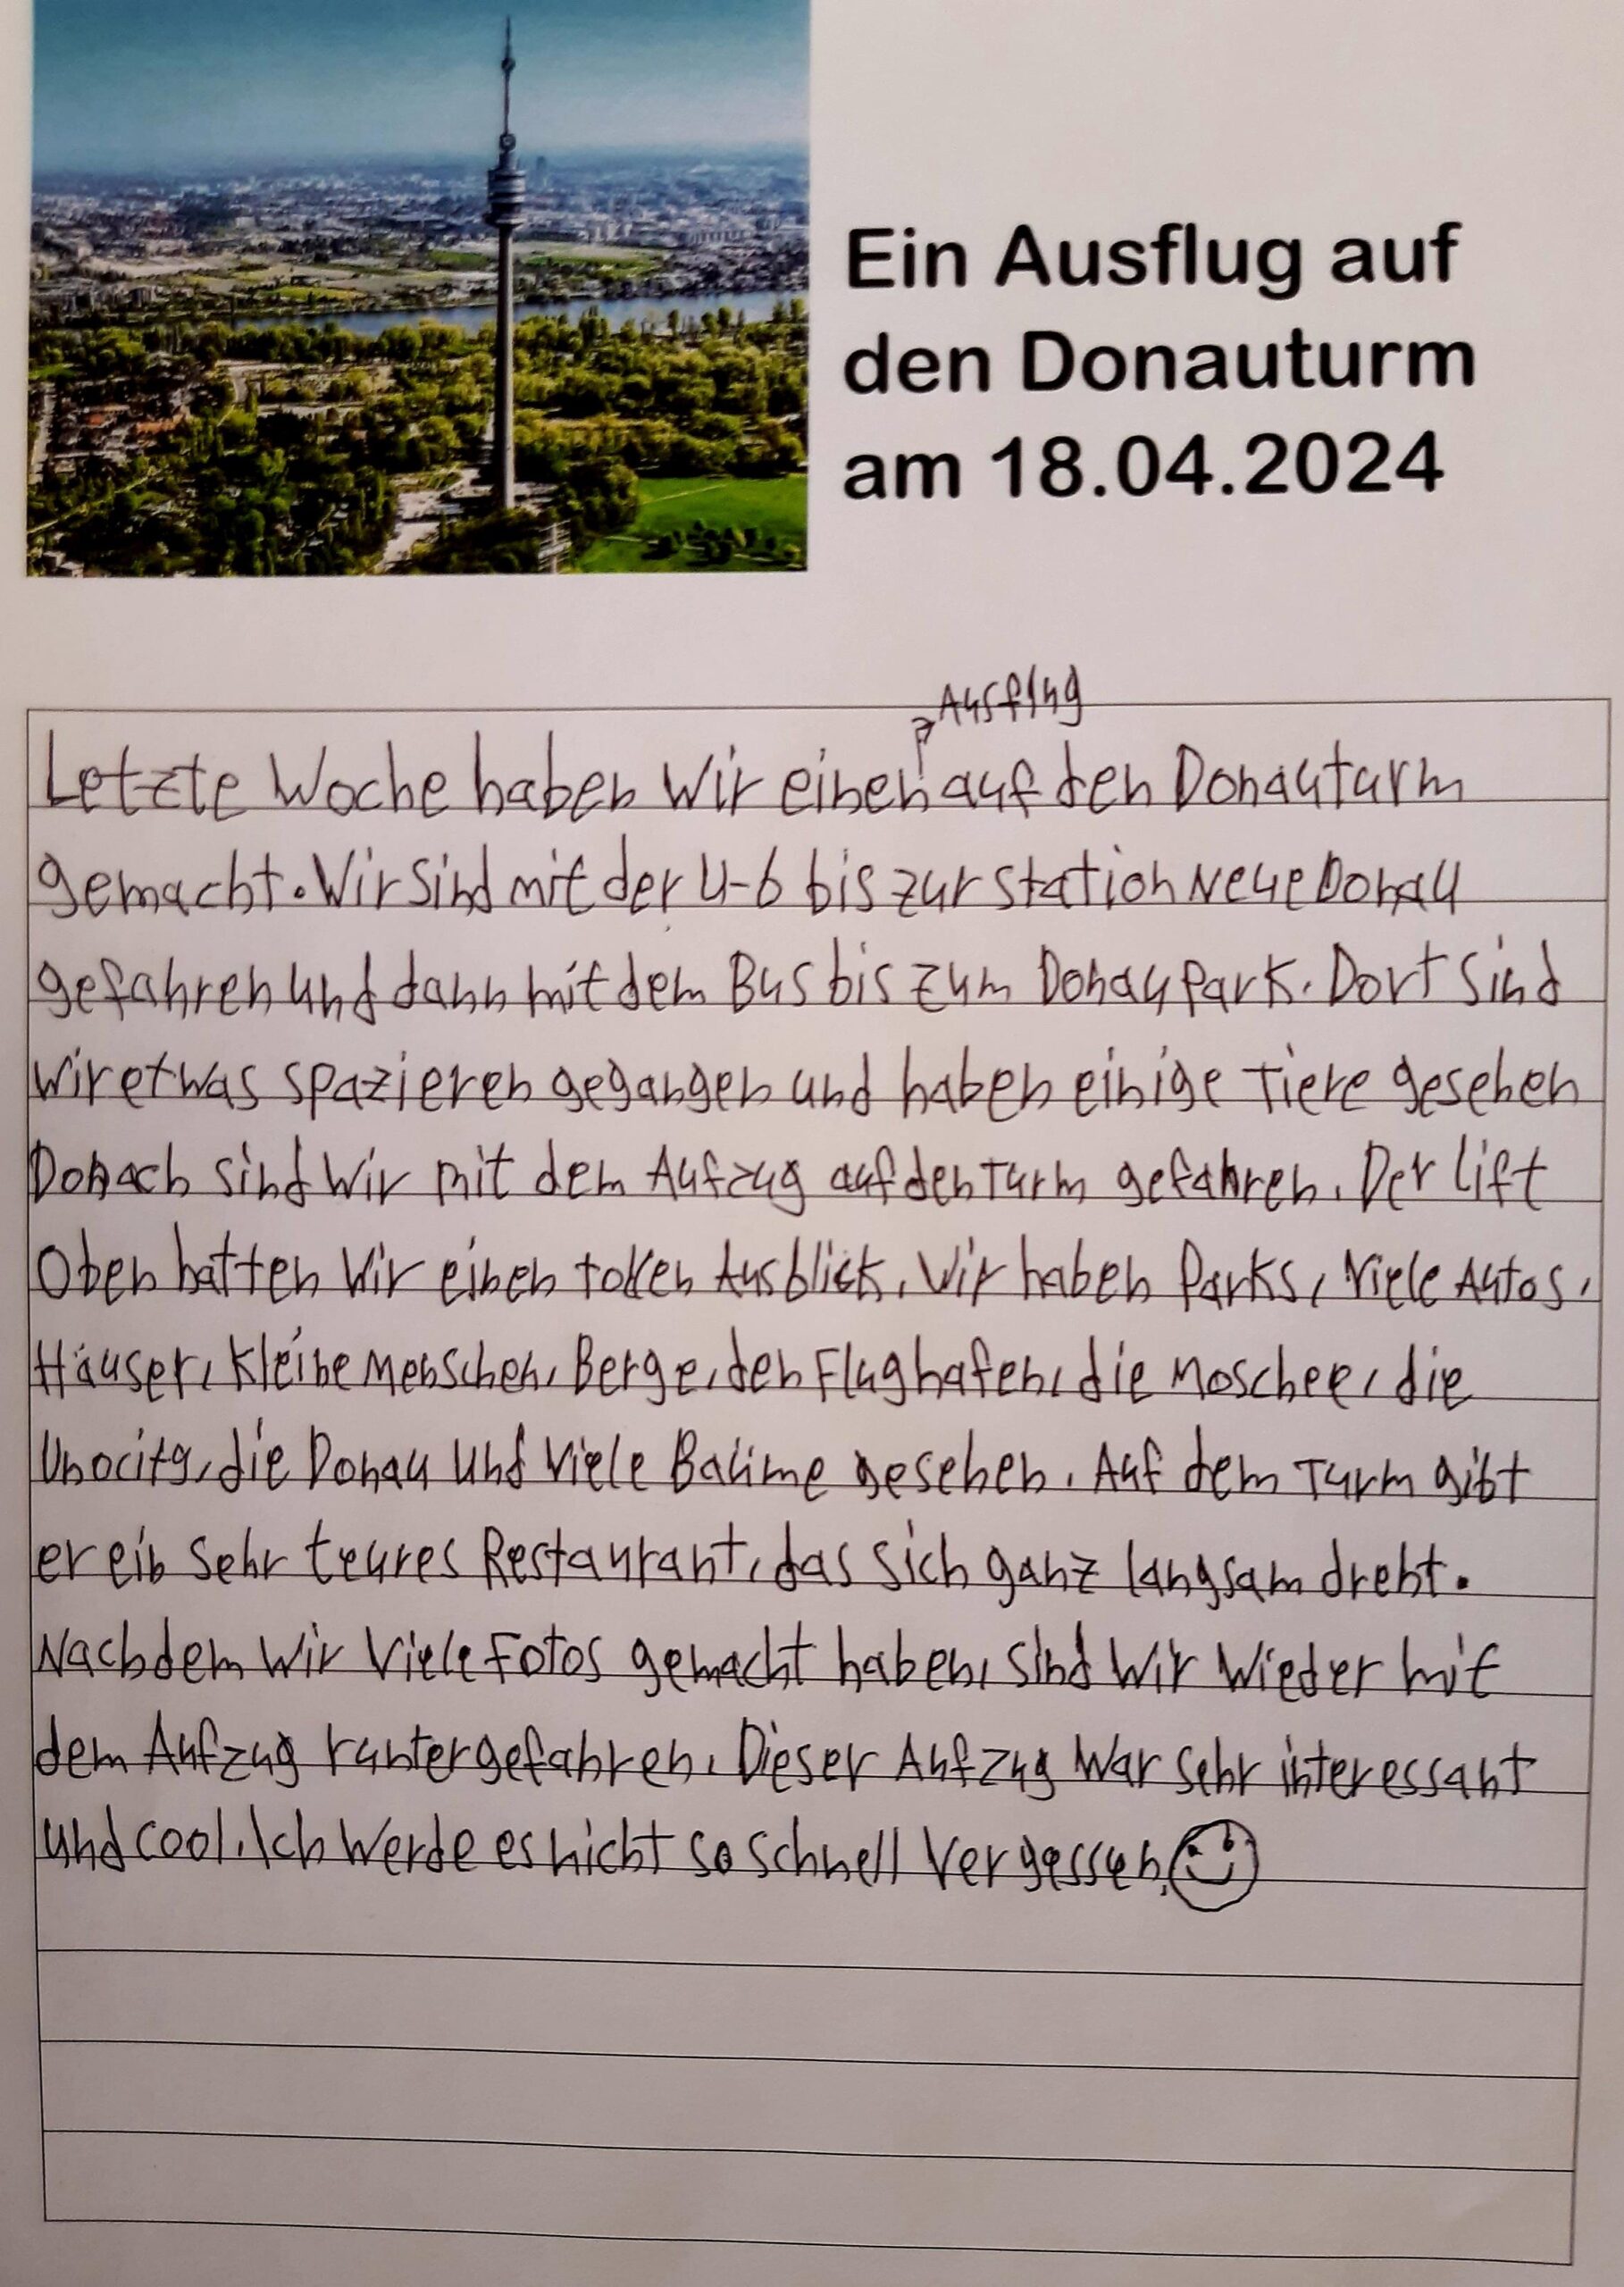 Ein Ausflug auf
den Donauturm
am 18.04.2024
Ausflug
Letzte Woche haben wir einen auf den Donauturm
gemacht. Wir sind mit der U-6 bis zur Station Neue Donau
gefahren und dann mit dem Bus bis zum Donaupark. Dort sind
wir etwas spazieren gegangen und haben einige Tiere gesehen
Donach sind wir mit dem Aufzug auf den Turm gefahren. Der Lift
Oben hatten wir einen tollen Ausblick. Wir haben Parks, viele Autos,
Häuser, kleine Menschen, Berge, den Flughafen, die Moschee, die
Unocity, die Donau und viele Bäume gesehen. Auf dem Turm gibt
er ein sehr teures Restaurant, das sich ganz langsam dreht.
Nachdem wir viele Fotos gemacht haben, sind wir wieder mit
dem Aufzug runtergefahren. Dieser Aufzug war sehr interessant
und cool. Ich werde es nicht so schnell vergessen.